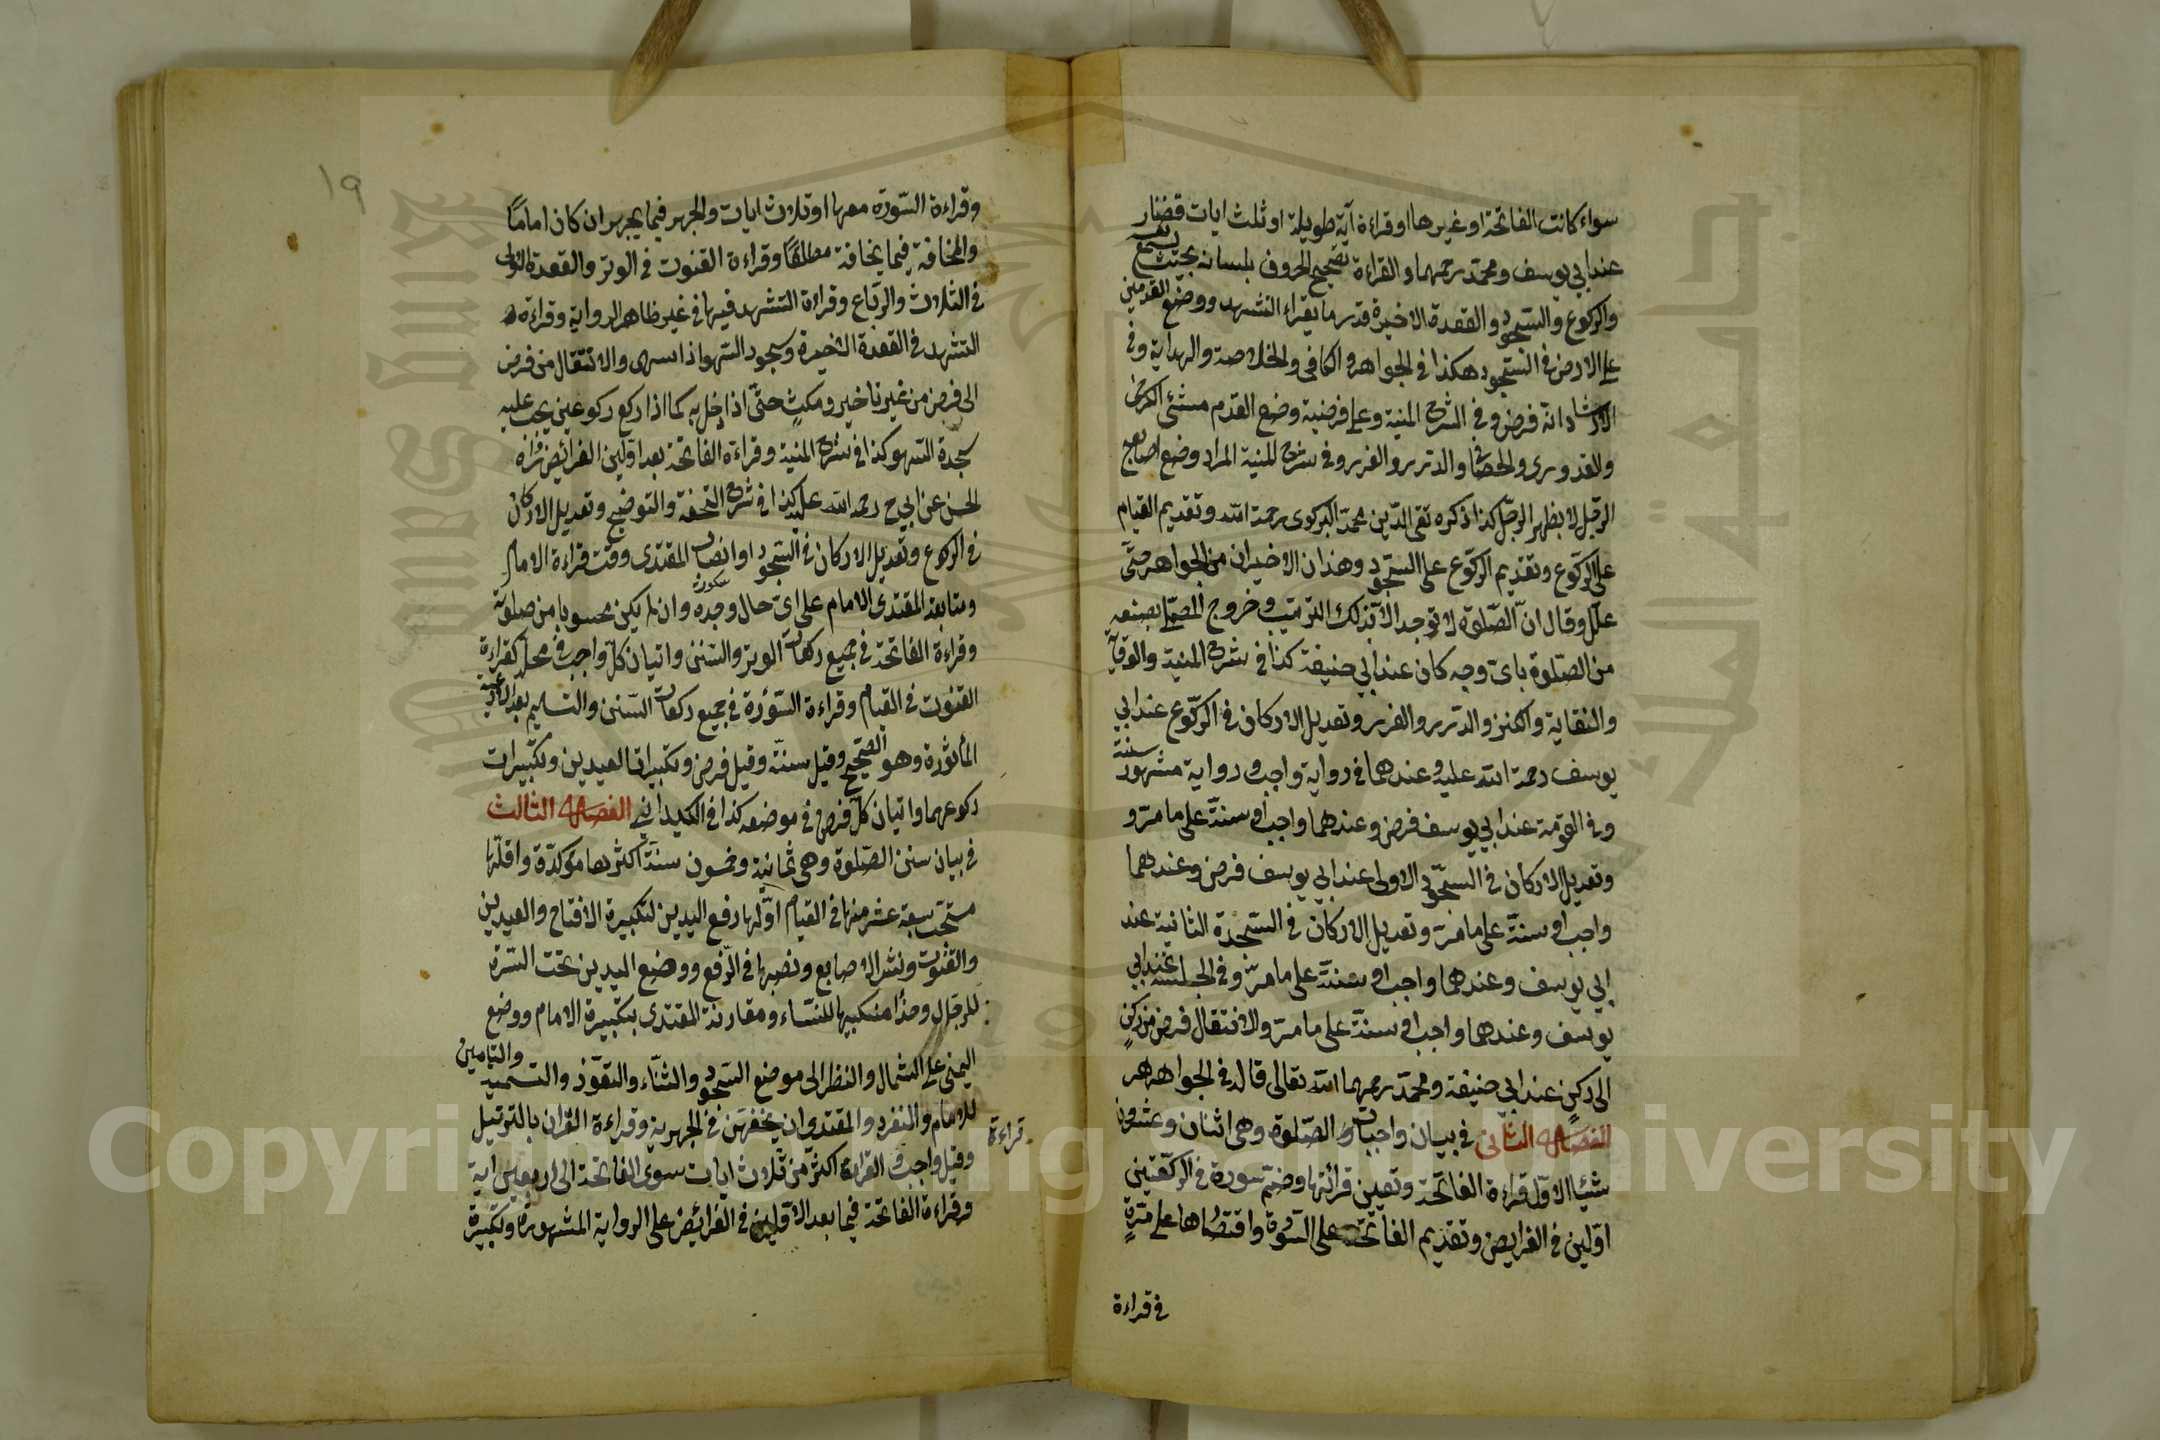 سواء كانت الفاتحة او غيرها او قراءة آية طويلة او ثلث ايات قصار
عند ابي يوسف ومحمد رحمهما والقراءة تصحيح الحروف بلسانه بحيث يسمع نفسه
والركوع والسجود والقعدة الاخيرة قدر ما يقراء التشهد ووضع القدمين
على الارض في السجود هكذا في الجواهر والكافي والخلاصة والهداية وفي
انه فرض وفي الشرح المنية وعلى فرضية وضع القدم مشئ الكرخى
والقدورى والدرر والغرر وفي شرح المنية المراد وضع اصابع
الرجل لا بظهر الرجل كذا ذكره تقى الدين محمد البركوى رحمة الله وتقديم القيام
على الركوع وتقديم الركوع على السجود وهذان الاخيران من الجواهر حتى
علل وقال ان الصلوة لا توجد الا بذلك الترتيب وخروج المصلى بصنعه
من الصلوة باى وجه كان عند ابي حنيفة كذا في شرح المنية والوقاية
والنقاية والكنز والدرر والغرر وتعديل الاركان في الركوع عند ابي
يوسف رحمة الله عليه وعندهما في رواية واجب وفي رواية مشهور سنة
وفي القومة عند ابي يوسف فرض وعندهما واجب او سنة على ما مر و
وتعديل الاركان في السجود الاولى عند ابي يوسف فرض وعندهما
واجب او سنة على ما مر وتعديل الاركان في السجدة الثانية عند
ابي يوسف وعندهما واجب او سنة على ما مر وفي الجلسة عند ابي
يوسف وعندهما واجب او سنة على ما مر والانتقال فرض من ركن
الى ركن عند ابي حنيفة ومحمد رحمهما الله تعالى قاله في الجواهر
الفصل الثاني في بيان واجبات الصلوة وهى اثنان وعشرون
شيئا الاول قراءة الفاتحة وتعيين قرائتها وضم سورة في الركعتين
اولين في الفرايض وتقديم الفاتحة على السورة واقتصارها على مرة
في قراءة
١٩
وقراءة السورة معها او ثلاث ايات والجهر فيما يجهر ان كان اماما
والمخافة فيما يخافة مطلقا وقراءة القنوت في الوتر والقعدة الاولى
في الثلاث والرباع وقراءة التشهد فيها في غير ظاهر الرواية وقراءة
التشهد في القعدة الاخيرة وسجود السهو اذا سهى والانتقال من فرض
الى فرض من غير تاخير ومكث حتى اذا اخل به كما اذا ركع ركوعين يجب عليه
سجدة السهو كذا في شرح المنية وقراءة الفاتحة بعد اولين الفرائض
الحسن عن ابي ح رحمه الله عليه كذا في شرح التحفة والتوضيح وتعديل الاركان
في الركوع وتعديل الاركان في السجود وانصات المقتدى وقت قراءة الامام
ومتابعة المقتدى الامام على اى حال وجده وان لم يكن محسوبا من صلوته
وقراءة الفاتحة في جميع ركعات الوتر والسنن واتيان كل واجب في محله كقراءة
القنوت في القيام وقراءة السورة في جميع ركعات السنن والتسليم بعد الادعية
المأثورة وهو الصحيح وقيل سنة وقيل فرض وتكبيرات العيدين وتكبيرات
ركوعهما واتيان كل فرض في موضعه كذا في الكيدانى الفصل الثالث
في بيان سنن الصلوة وهى ثمانية وخمسون سنة اكثرها موكدة واقلها
مستحب سبعة عشر منها في القيام اولها رفع اليدين لتكبيرة الافتاح والعيدين
والقنوت ونشر الاصابع ونصبها في الرفع ووضع اليدين تحت السرة
للرجال وحذا منكبيها للنساء ومقارنة المقتدى بتكبيرة الامام ووضع
اليمنى على الشمال والنظر الى موضع السجود والثناء والتعوذ والتسمية والتامين
للامام والمنفرد والمقتدى وان يخفهن في الجهرية وقراءة القران بالترتيل
قراءة
وقيل واجب القراءة اكثر من ثلاث ايات سوى الفاتحة الى اربعين اية
وقراءة الفاتحة فيما بعد الاولين في الفرائض على الرواية المشهورة وتكبيرة
Copyright © King Saud University